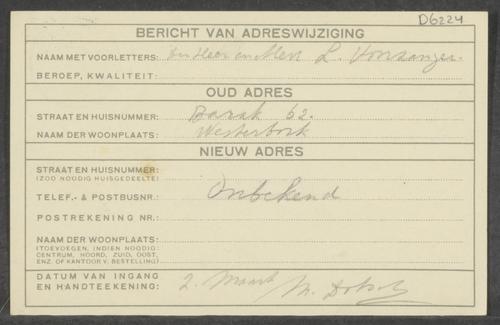 D6224
BERICHT VAN ADRESWIJZIGING
NAAM MET VOORLETTERS: den Heer en Mevr L. Voorzanger.
BEROEP, KWALITEIT:
OUD ADRES
STRAAT EN HUISNUMMER: Barak 62.
NAAM DER WOONPLAATS: Westerbork
NIEUW ADRES
STRAAT EN HUISNUMMER:
(ZOO NOODIG HUISGEDEELTE)
TELEF.- & POSTBUSNR.: Onbekend
POSTREKENING NR.:
NAAM DER WOONPLAATS:
(TOEVOEGEN, INDIEN NOODIG:
CENTRUM, NOORD, ZUID, OOST,
ENZ. OF KANTOOR V. BESTELLING)
DATUM VAN INGANG
EN HANDTEEKENING: 2. Maart M.